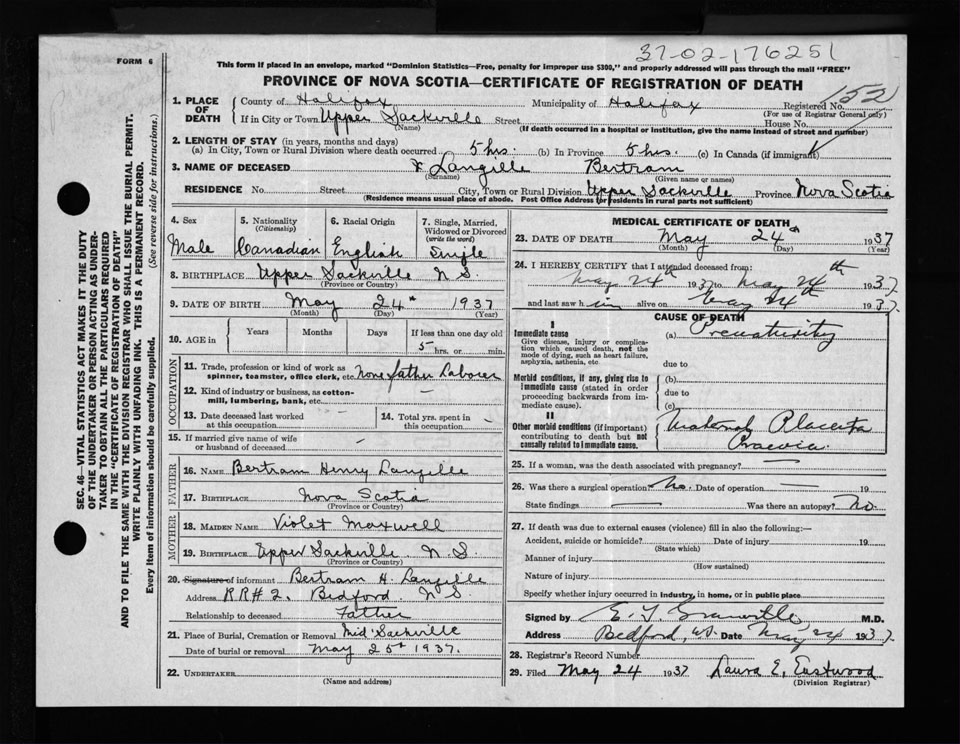 37-02-176251
FORM 6
This form if placed in an envelope, marked "Dominion Statistics—Free, penalty for improper use $300," and properly addressed will pass through the mail "FREE"
PROVINCE OF NOVA SCOTIA—CERTIFICATE OF REGISTRATION OF DEATH
152
1. PLACE OF DEATH
County of Halifax Municipality of Halifax Registered No.
(For use of Registrar General only)
If in City or Town Upper Sackville Street House No.
(Name) (If death occurred in a hospital or institution, give the name instead of street and number)
2. LENGTH OF STAY (in years, months and days)
(a) In City, Town or Rural Division where death occurred 5 hrs. (b) In Province 5 hrs. (c) In Canada (if immigrant)
3. NAME OF DECEASED Langille Bertram
(Surname) (Given name or names)
RESIDENCE No. Street City, Town or Rural Division Upper Sackville Province Nova Scotia
(Residence means usual place of abode. Post Office Address for residents in rural parts not sufficient)
4. Sex 5. Nationality (Citizenship) 6. Racial Origin 7. Single, Married, Widowed or Divorced (write the word)
Male Canadian English Single
8. BIRTHPLACE Upper Sackville N S.
(Province or Country)
9. DATE OF BIRTH May 24th 1937
(Month) (Day) (Year)
10. AGE in Years Months Days If less than one day old
5 hrs. or min.
OCCUPATION
11. Trade, profession or kind of work as spinner, teamster, office clerk, etc. None father Laborer
12. Kind of industry or business, as cotton-mill, lumbering, bank, etc. —
13. Date deceased last worked at this occupation — 14. Total yrs. spent in this occupation -
15. If married give name of wife or husband of deceased —
FATHER
16. NAME Bertram Henry Langille
17. BIRTHPLACE Nova Scotia
MOTHER
18. MAIDEN NAME Violet Maxwell
19. BIRTHPLACE Upper Sackville N.S.
(Province or Country)
20. Signature of informant Bertram H. Langille
Address RR#2. Bedford N S
Relationship to deceased Father
21. Place of Burial, Cremation or Removal Mid Sackville
Date of burial or removal May 25th 1937.
22. UNDERTAKER
(Name and address)
MEDICAL CERTIFICATE OF DEATH
23. DATE OF DEATH May 24th 1937
(Month) (Day) (Year)
24. I HEREBY CERTIFY that I attended deceased from:
May 24th 1937 to May 24th 1937.
and last saw him alive on May 24th 1937.
CAUSE OF DEATH
I
Immediate cause (a) Prematurity
Give disease, injury or complication which caused death, not the mode of dying, such as heart failure, asphyxia, asthenia, etc.
due to
Morbid conditions, if any, giving rise to immediate cause (stated in order proceeding backwards from immediate cause).
(b)
due to
(c)
II
Other morbid conditions (if important) contributing to death but not causally related to immediate cause.
Maternal Placenta
Praevia.
25. If a woman, was the death associated with pregnancy? —
26. Was there a surgical operation? No. Date of operation — 19
State findings — Was there an autopsy? No.
27. If death was due to external causes (violence) fill in also the following:—
Accident, suicide or homicide? Date of injury 19
(State which)
Manner of injury
(How sustained)
Nature of injury
Specify whether injury occurred in industry, in home, or in public place
Signed by M.D.
Address Bedford, Date May 24 1937.
28. Registrar's Record Number
29. Filed May 24 1937 Laura E. Eastwood
(Division Registrar)
SEC. 46—VITAL STATISTICS ACT MAKES IT THE DUTY
OF THE UNDERTAKER OR PERSON ACTING AS UNDER-
TAKER TO OBTAIN ALL THE PARTICULARS REQUIRED
IN THE "CERTIFICATE OF REGISTRATION OF DEATH"
AND TO FILE THE SAME WITH THE DIVISION REGISTRAR WHO SHALL ISSUE THE BURIAL PERMIT.
WRITE PLAINLY WITH UNFADING INK. THIS IS A PERMANENT RECORD.
Every item of information should be carefully supplied. (See reverse side for instructions.)